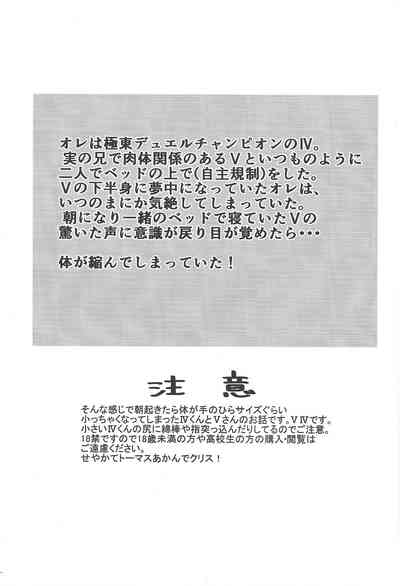 オレは極東デュエルチャンピオンのⅣ。
実の兄で肉体関係のあるⅤといつものように
二人でベッドの上で(自主規制)をした。
Ⅴの下半身に夢中になっていたオレは、
いつのまにか気絶してしまっていた。
朝になり一緒のベッドで寝ていたⅤの
驚いた声に意識が戻り目が覚めたら･･･
体が縮んでしまっていた！
注意
そんな感じで朝起きたら体が手のひらサイズぐらい
小っちゃくなってしまったⅣくんとⅤさんのお話です。ⅤⅣです。
小さいⅣくんの尻に綿棒や指突っ込んだりしてるのでご注意。
18禁ですので18歳未満の方や高校生の方の購入・閲覧は
ご遠慮ください。
せやかてトーマスあかんでクリス！